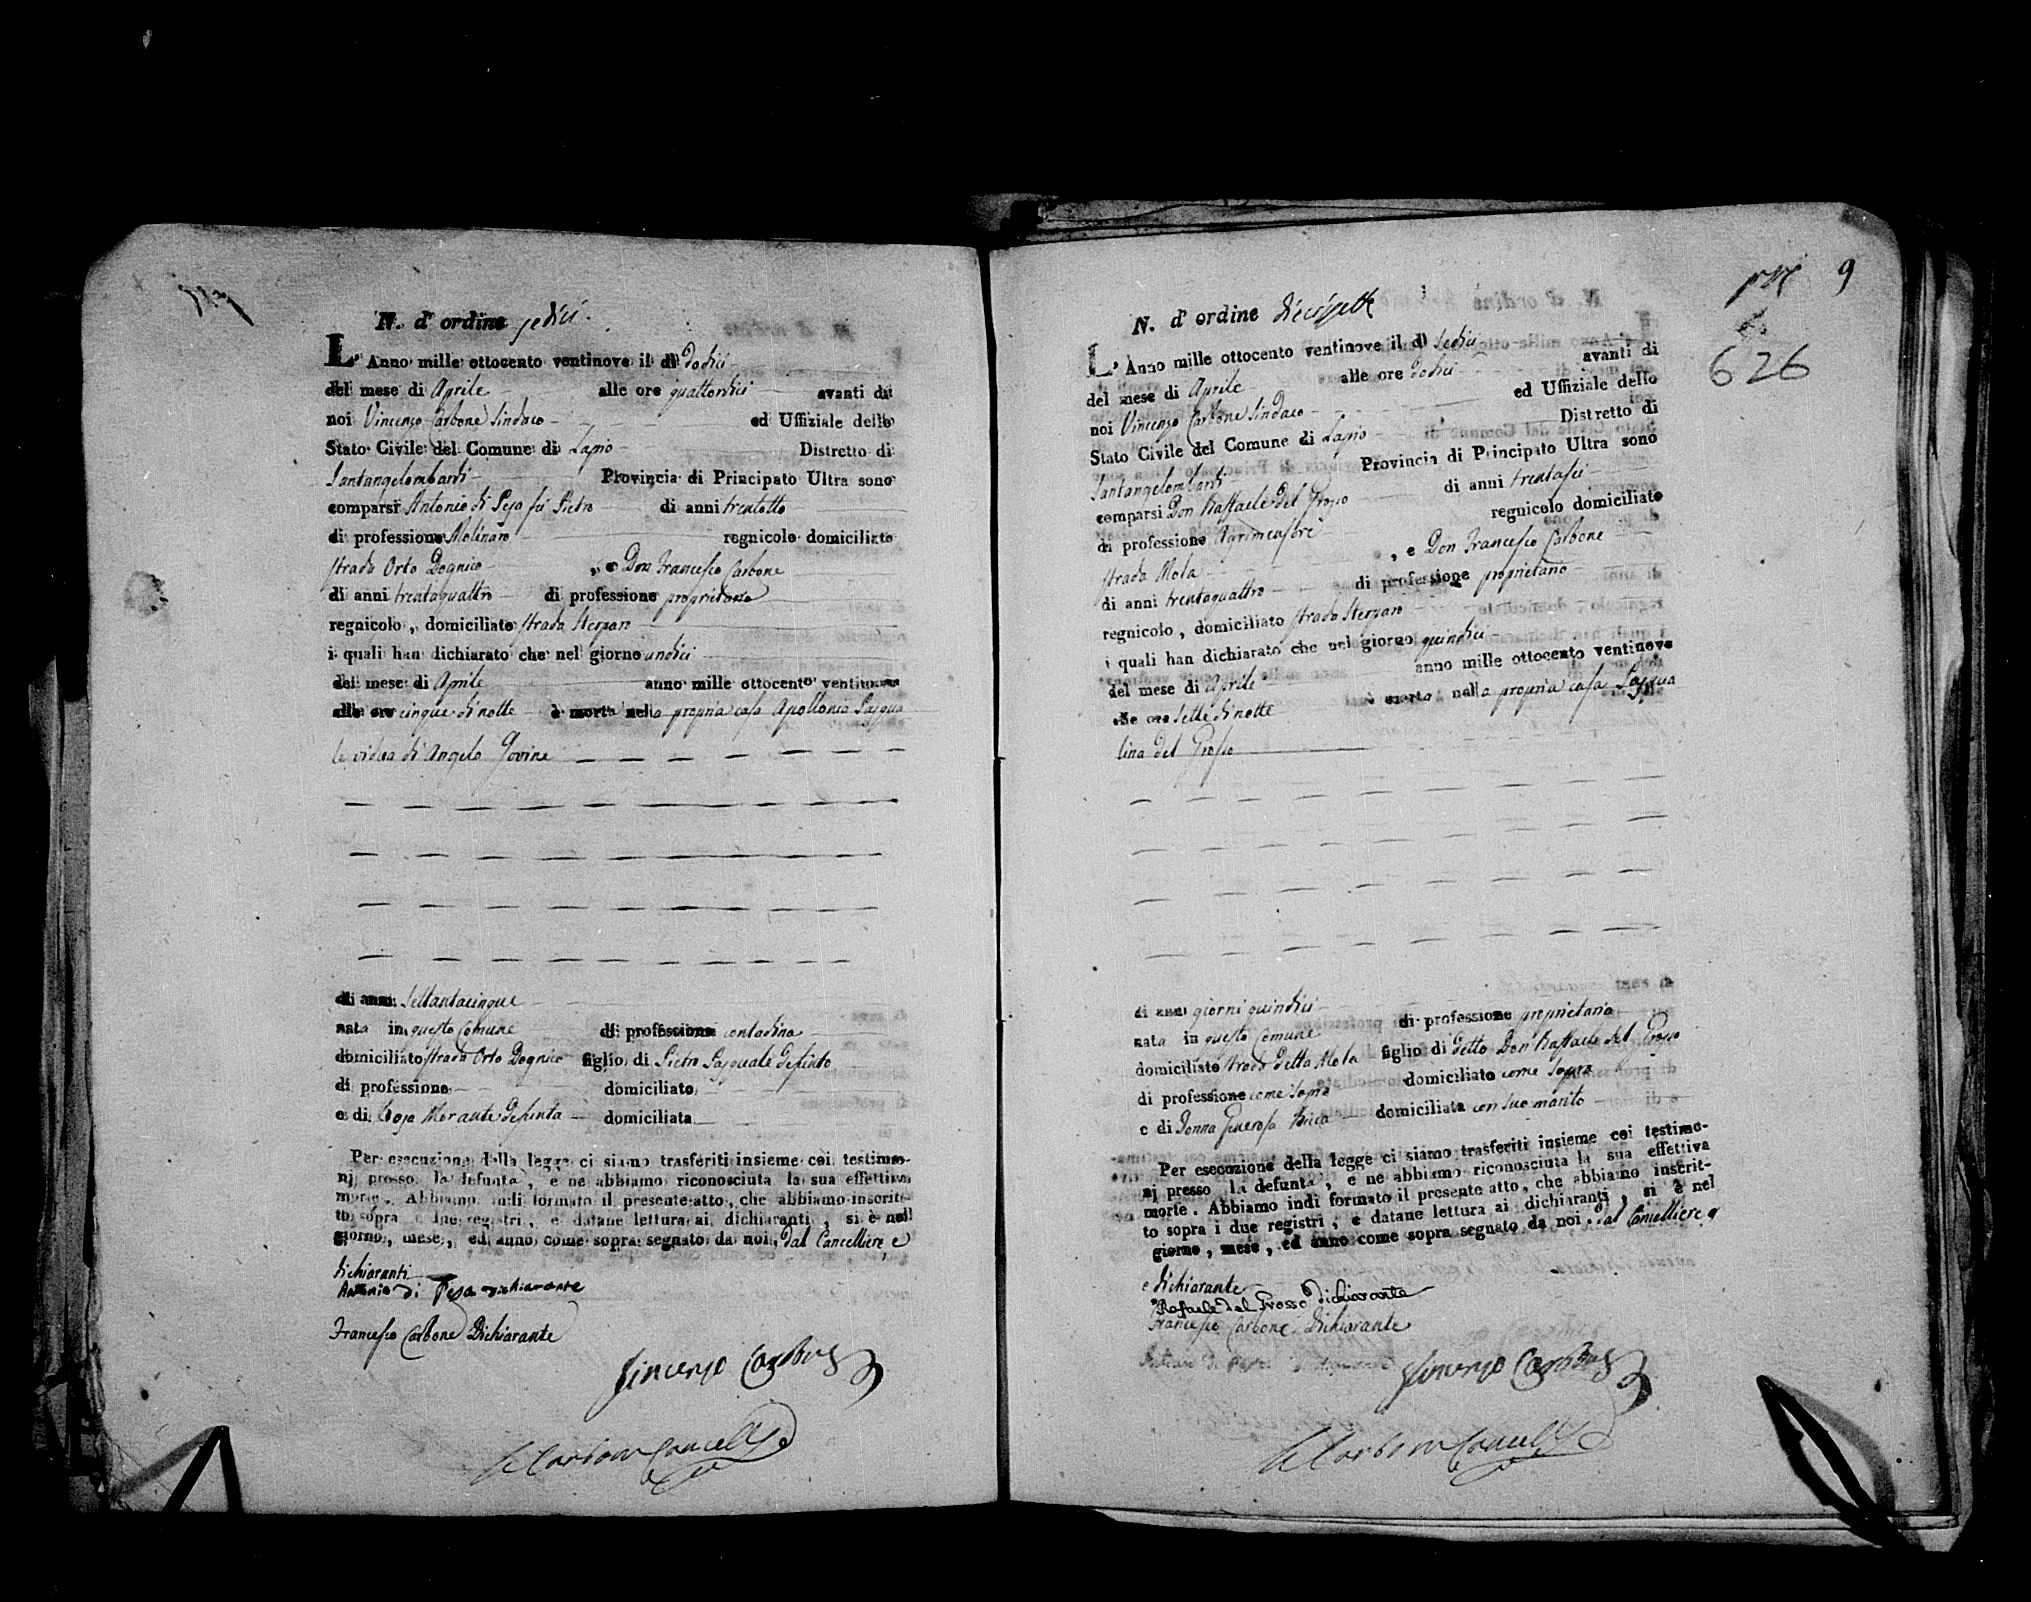 N. d' ordine sedici.
L' Anno mille ottocento ventinove il dì dodici
del mese di Aprile alle ore quattordici avanti di
noi Vincenzo Carbone Sindaco ed Uffiziale dello
Stato Civile del Comune di Lapio Distretto di
Santangelombardi Provincia di Principato Ultra sono
comparsi Antonio di Peso fù Pietro di anni trentotto
di professione Molinaro regnicolo domiciliato
strada Orto Dognico , e Don Francesco Carbone
di anni trentaquattro di professione proprietario
regnicolo , domiciliato strada Sterparo
i quali han dichiarato che nel giorno undici
del mese di Aprile anno mille ottocento ventinove
alle ore cinque di notte è morta nella propria casa Apollonia Pasqua
le vidua di Angelo Jovine
di anni settantacinque
nata in questo Comune di professione contadina
domiciliato strada Orto Dognico figlio di Pietro Pasquale defunto
di professione domiciliato
e di Morante defunta domiciliata
Per esecuzione della legge ci siamo trasferiti insieme coi testimo-
nj presso la defunta , e ne abbiamo riconosciuta la sua effettiva
morte . Abbiamo indi formato il presente atto , che abbiamo inscrit-
to sopra i due registri , e datane lettura ai dichiaranti , si è nel
giorno , mese , ed anno come sopra segnato da noi , dal Cancelliere e
dichiaranti
Antonio di Pesa dichiarante
Francesco Carbone Dichiarante
Vincenzo Carbone
Carbone Cancell
9
626
N. d' ordine diecisette
L' Anno mille ottocento ventinove il dì sedici
del mese di Aprile alle ore dodici avanti di
noi Vincenzo Carbone Sindaco ed Uffiziale dello
Stato Civile del Comune di Lapio Distretto di
Santangelombardi Provincia di Principato Ultra sono
comparsi Don Raffaele del Grosso di anni trentasei
di professione Agrimensore regnicolo domiciliato
strada Mola , e Don Francesco Carbone
di anni trentaquattro di professione proprietario
regnicolo , domiciliato strada Sterparo
i quali han dichiarato che nel giorno quindici
del mese di Aprile anno mille ottocento ventinove
alle ore sette di notte è morta nella propria casa Pasqua
lina del Grosso
di anni giorni quindici
nata in questo Comune di professione proprietaria
domiciliato strada detta Mola figlio di detto Don Raffaele del Grosso
di professione come sopra domiciliato come sopra
e di Donna Generosa domiciliata con suo marito
Per esecuzione della legge ci siamo trasferiti insieme coi testimo-
nj presso la defunta , e ne abbiamo riconosciuta la sua effettiva
morte . Abbiamo indi formato il presente atto , che abbiamo inscrit-
to sopra i due registri , e datane lettura ai dichiaranti , si è nel
giorno , mese , ed anno come sopra segnato da noi , dal Cancelliere
e dichiarante
Raffaele del Grosso dichiarante
Francesco Carbone Dichiarante
Vincenzo Carbone
Carbone Cancell